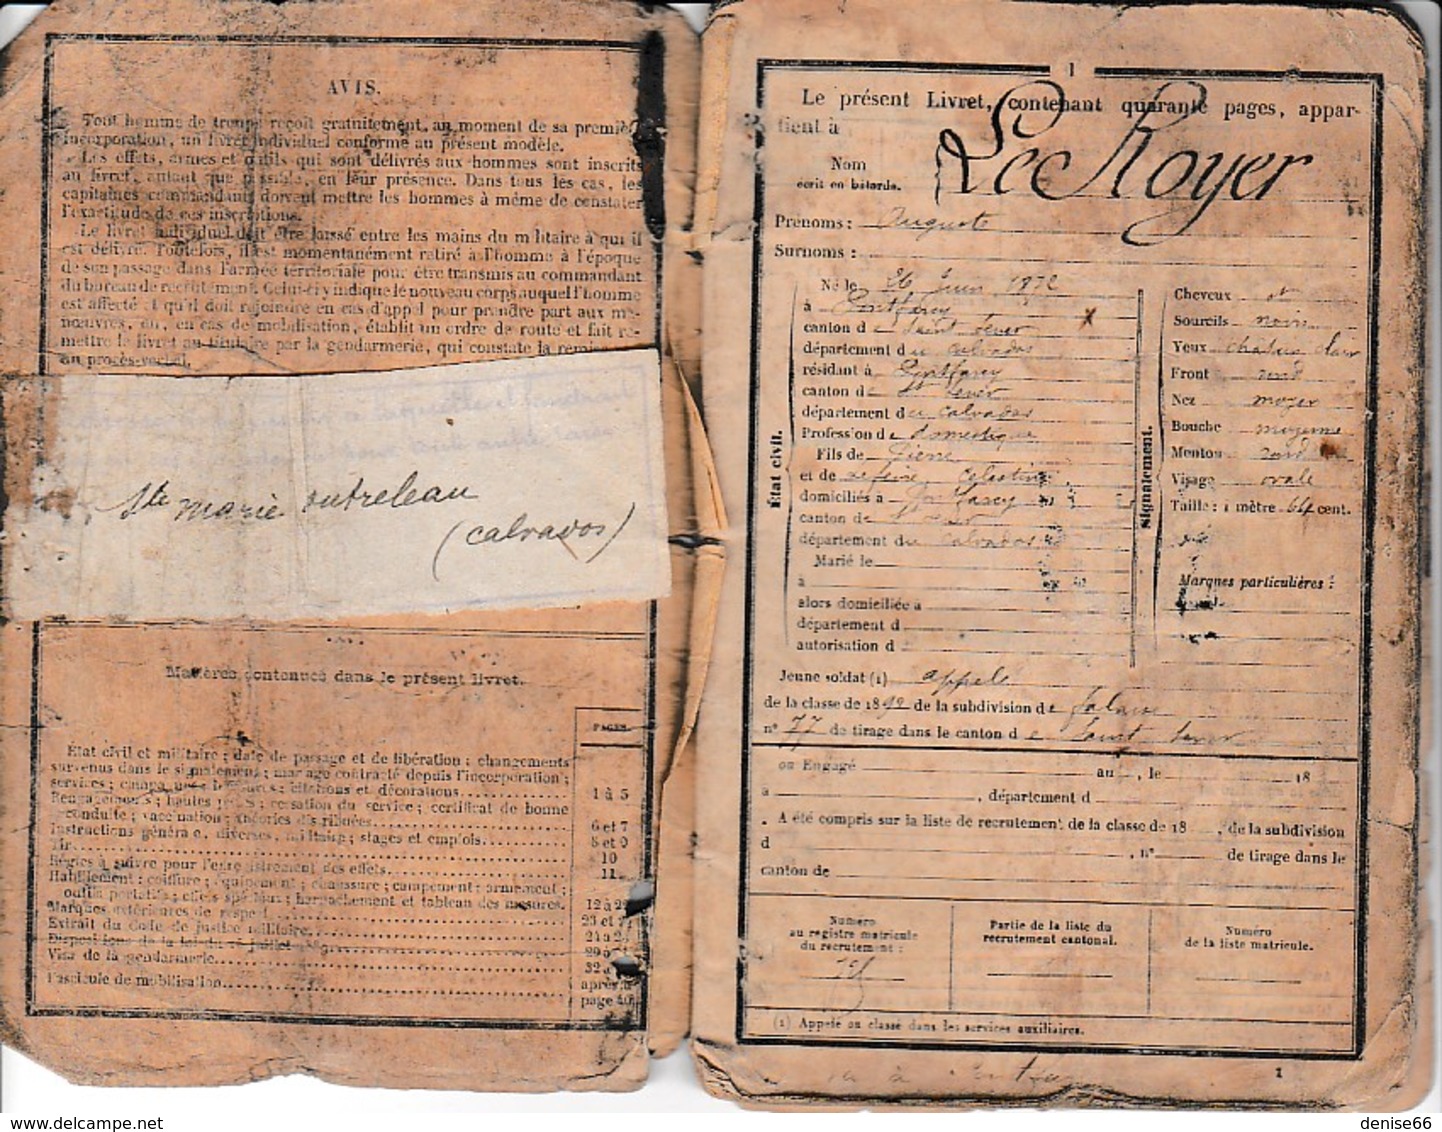 AVIS.
Tout homme de troupe reçoit gratuitement, au moment de sa première
incorporation, un livret individuel conforme au présent modèle.
Les effets, armes et outils qui sont délivrés aux hommes sont inscrits
au livret, autant que possible, en leur présence. Dans tous les cas, les
capitaines commandants doivent mettre les hommes à même de constater
l'exactitude de ces inscriptions.
Le livret individuel doit être laissé entre les mains du militaire à qui il
est délivré. Toutefois, il est momentanément retiré à l'homme à l'époque
de son passage dans l'armée territoriale pour être transmis au commandant
du bureau de recrutement. Celui-ci y indique le nouveau corps auquel l'homme
est affecté et qu'il doit rejoindre en cas d'appel pour prendre part aux ma-
nœuvres, ou, en cas de mobilisation, établit un ordre de route et fait re-
mettre le livret au titulaire par la gendarmerie, qui constate la remise
un procès-verbal.
Ste Marie outreleau
(calvados)
Matières contenues dans le présent livret.
PAGES
État civil et militaire ; date de passage et de libération ; changements
survenus dans le signalement ; mariage contracté depuis l'incorporation ;
services ; campagnes ; blessures ; citations et décorations. 1 à 5
Rengagements ; hautes payes ; cessation du service ; certificat de bonne
conduite ; vaccination ; théories distribuées. 6 et 7
Instructions générale, diverses, militaire ; stages et emplois. 8 et 9
Tir. 10
Règles à suivre pour l'enregistrement des effets. 11
Habillement ; coiffure ; équipement ; chaussure ; campement ; armement ;
outils portatifs ; effets spéciaux ; harnachement et tableau des mesures. 12 à 22
Marques extérieures de respect. 23 et
Extrait du Code de justice militaire. 24 à
Dispositions de la loi du 15 juillet 1889. 29 à
Visa de la gendarmerie. 32 à
Fascicule de mobilisation. après la
page 40
1
Le présent Livret, contenant quarante pages, appar-
tient à
Nom
écrit en bâtarde.
Le Royer
Prénoms : Auguste
Surnoms :
État civil.
Né le 26 Juin 1872
à Pontfarcy
canton de Saint Sever
département du Calvados
résidant à Pontfarcy
canton de St Sever
département du Calvados
Profession de domestique
Fils de Pierre
et de Célestine
domiciliés à Pontfarcy
canton de St Sever
département du Calvados
Marié le
à
alors domiciliée à
département d
autorisation d
Signalement.
Cheveux et
Sourcils noirs
Yeux chatain clair
Front rond
Nez moyen
Bouche moyenne
Menton rond
Visage ovale
Taille : 1 mètre 64 cent.
Marques particulières :
Jeune soldat (1) appelé
de la classe de 1892 de la subdivision de Falaise
n° 77 de tirage dans le canton de Saint Sever
ou Engagé au , le 18
à , département d
A été compris sur la liste de recrutement de la classe de 18 , de la subdivision
d , n° de tirage dans le
canton de
Numéro
au registre matricule
du recrutement :
Partie de la liste du
recrutement cantonal.
Numéro
de la liste matricule.
(1) Appelé ou classé dans les services auxiliaires.
1
denise66